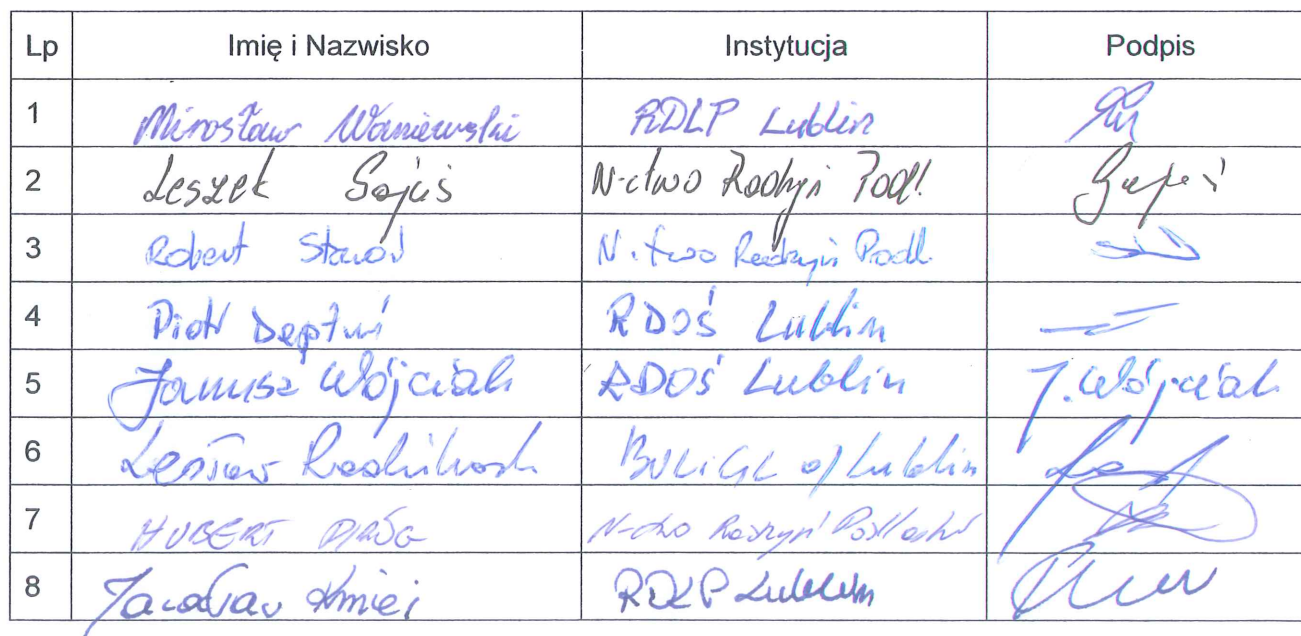 Lp Imię i Nazwisko Instytucja Podpis
1 Mirosław Waniewski RDLP Lublin
2 Leszek Gajuś N-ctwo Radzyń Podl.
3 Robert N-ctwo Radzyń Podl.
4 Piotr Deptuś RDOŚ Lublin
5 Janusz Wójciak RDOŚ Lublin J. Wójciak
6 Lesław BULiGL o/Lublin
7 HUBERT N-ctwo Radzyń Podlaski
8 Jarosław Kmieć RDLP Lublin